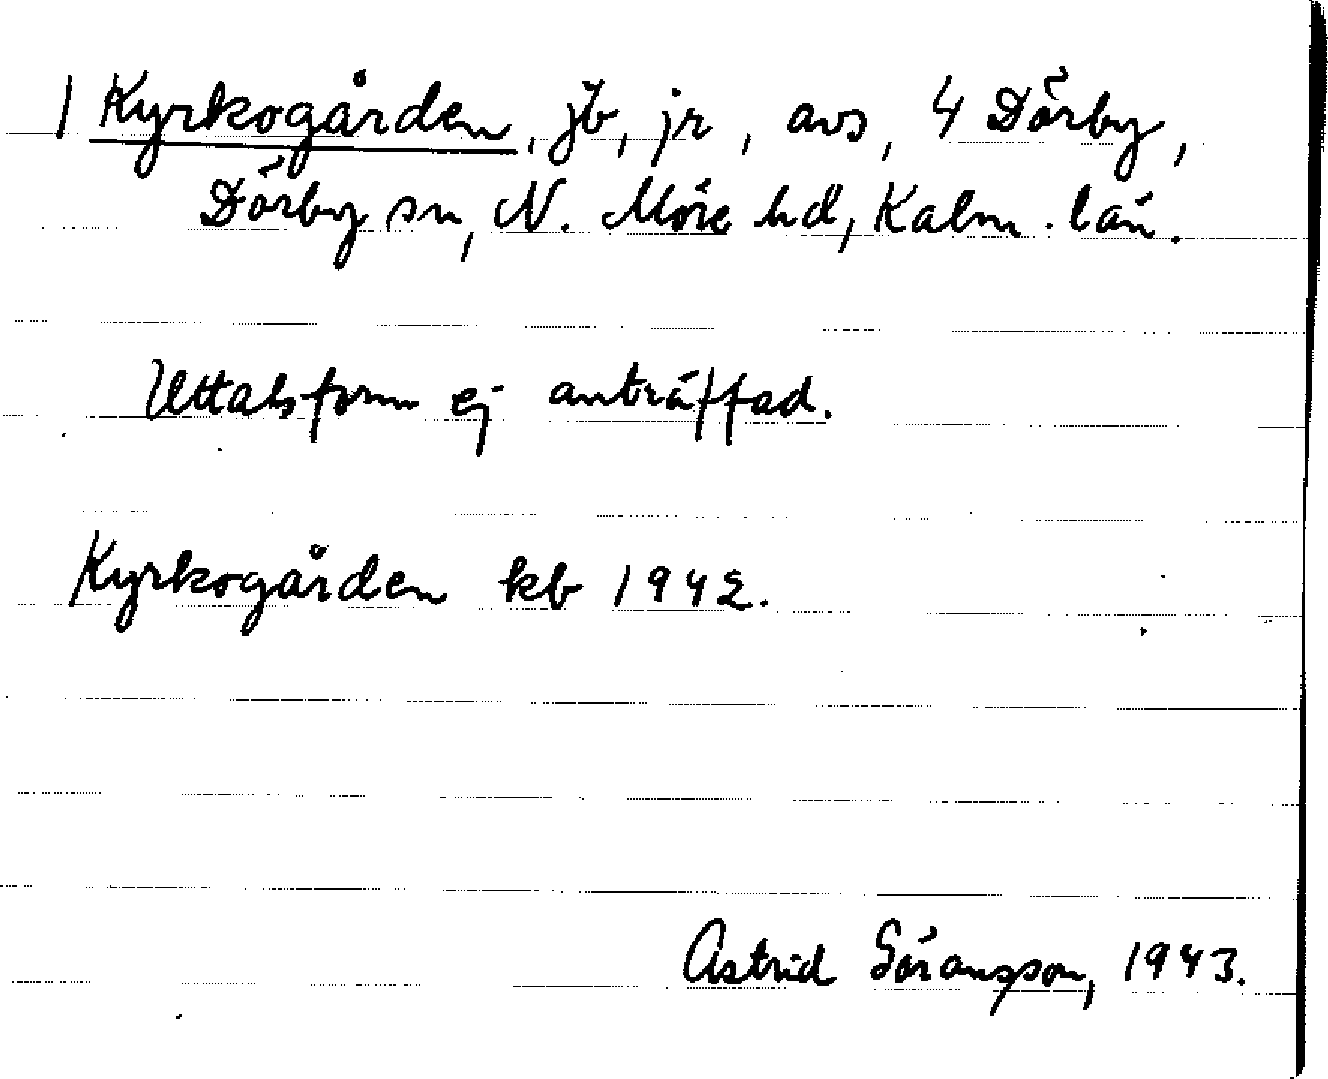 1 Kyrkogården, jb, jr, avs, 4 Dörby,
Dörby sn, N. Möre hd, Kalm. län.
Uttalsform ej anträffad.
Kyrkogården kb 1942.
Astrid Göransson, 1943.